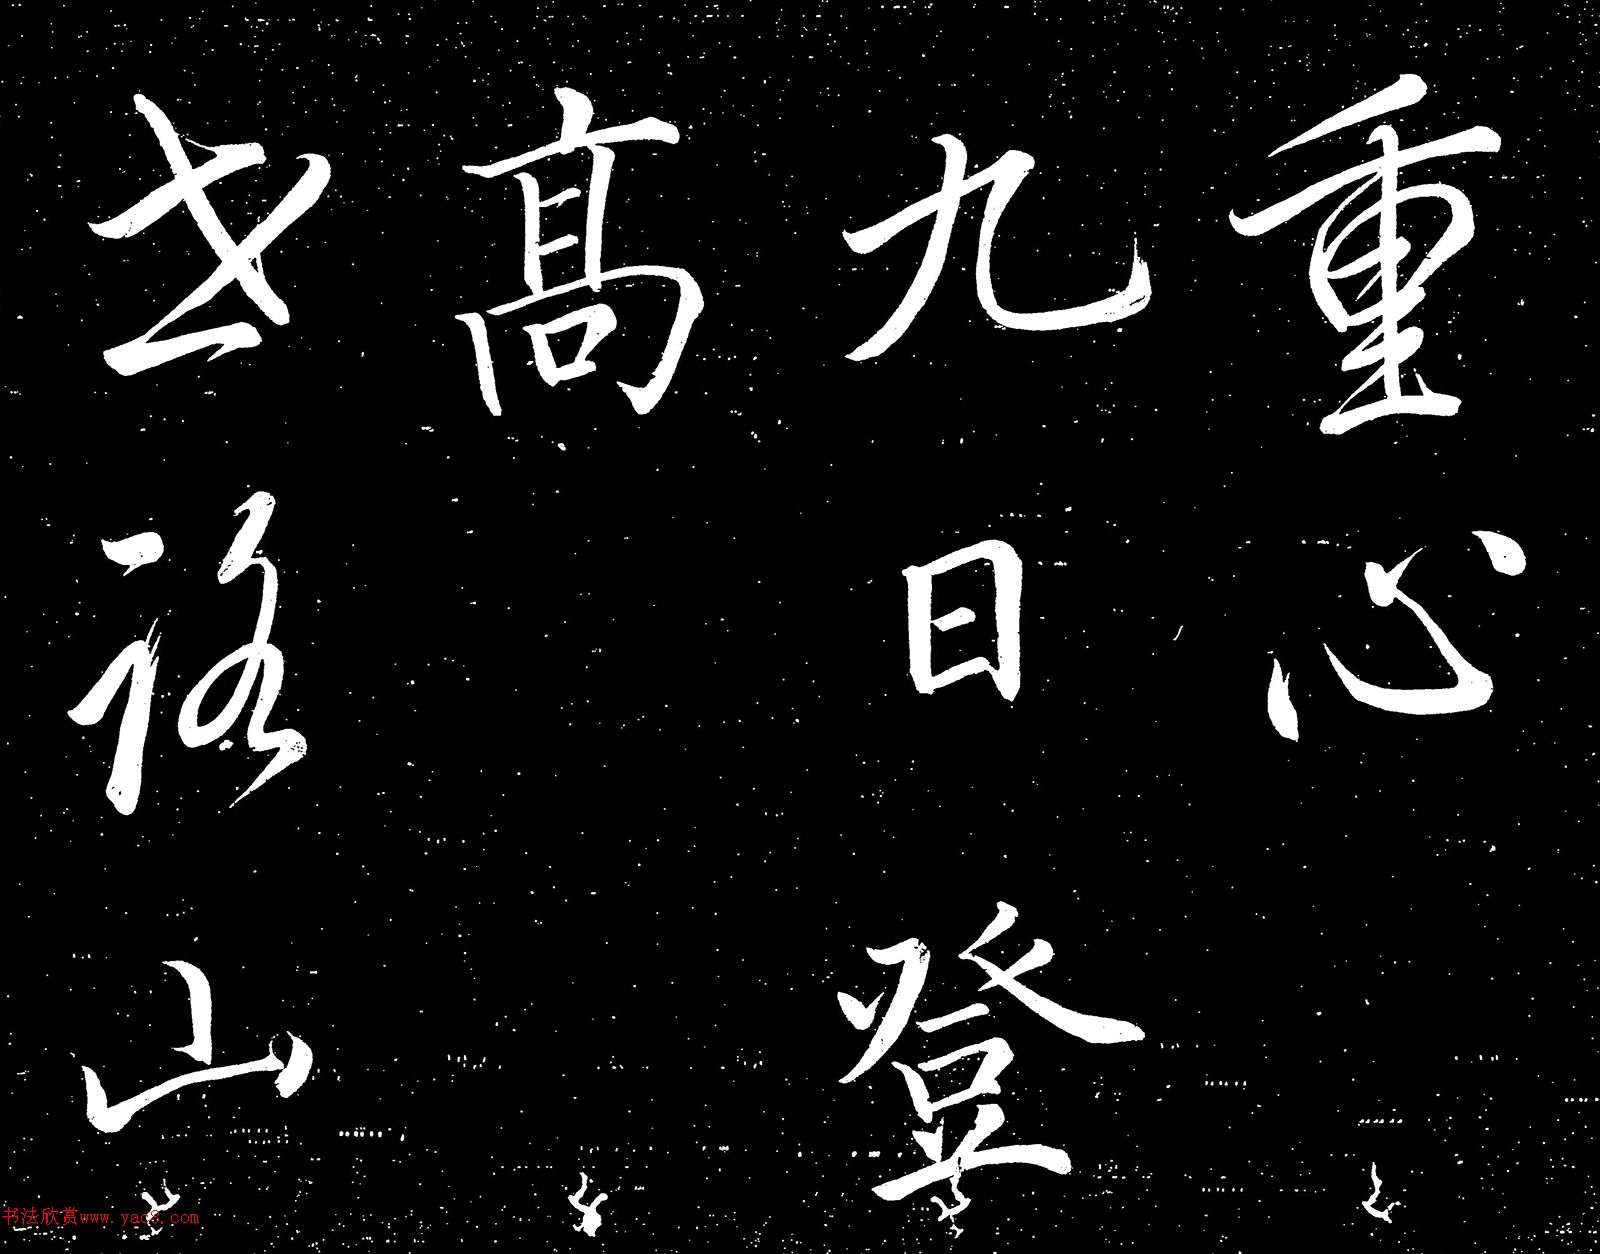 重心
九日登
高
山
书法欣赏www.yac8.com